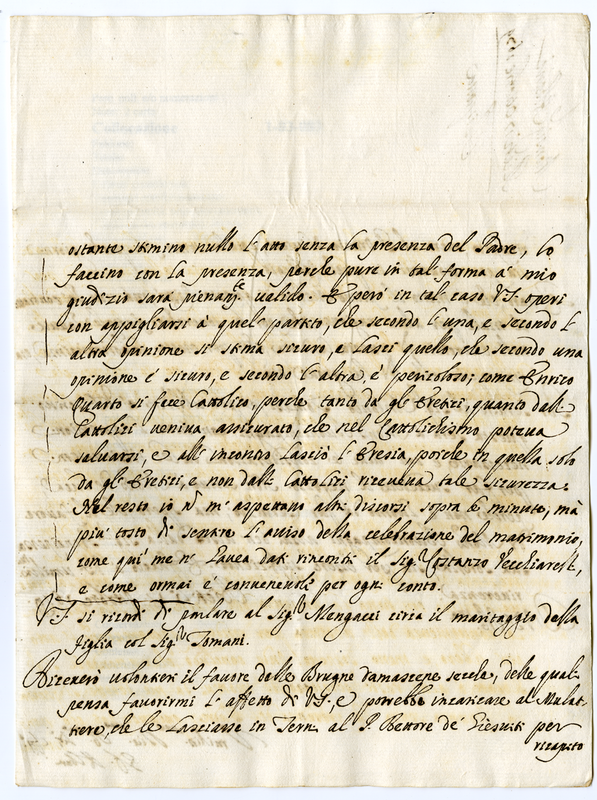 ostante stimino nullo l'atto senza la presenza del Padre, lo
faccino con la presenza, perche pure in tal forma à mio
giudizio sarà pienamte valido. E però in tal caso V.S. operi
con appigliarsi à quel partito, che secondo l'una, e secondo l'
altra opinione si stima sicuro, e lasci quello, che secondo una
opinione è sicuro, e secondo l'altra è pericoloso; come Enrico
Quarto si fece Cattolico, perche tanto da gl'Eretici, quanto dalli
Cattolici veniva assicurato, che nel Cattolichismo poteva
salvarsi, e all'incontro lasciò l'Eresia, perche in quella solo
da gl'Eretici, e non dalli Cattolici riceveva tale sicurezza.
Nel resto io nō m'aspettavo altri discorsi sopra le minute, mà
più tosto di sentire l'aviso della celebrazione del matrimonio,
come quì me n'havea dati rincontri il Sigr Costanzo Vecchiarelli,
e come ormai è convenevole per ogni conto.
V.S. si ricordi di parlare al Sigr Mengacci circa il maritaggio della
figlia col Sigr Tomani.
Riceverò volontieri il favore delle Brugne damascene secche, delle quali
pensa favorirmi l'affetto di V.S., e potrebbe incaricare al Mulat
tiero, che le lasciasse in Terni al P. Rettore de' Giesuiti per
ricapito